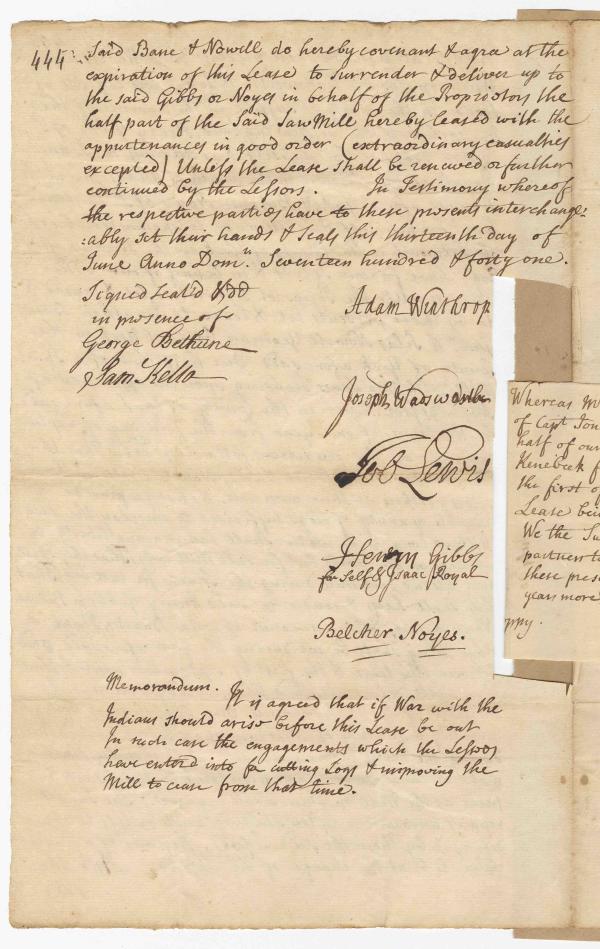 444.
Said Bane & Nowell do hereby covenant & agree at the
expiration of this Lease to Surrender & deliver up to
the said Gibbs or Noyes in behalf of the Proprietors the
half part of the Said Saw Mill hereby leased with the
appurtenances in good order (extraordinary casualties
excepted) Unless the Lease shall be renewed or further
continued by the Lessors. In Testimony whereof
the respective parties have to these presents interchange:
:ably set their hands & Seals this thirteenth day of
June Anno Dom. Seventeen hundred & forty one.
Signed seal'd & dd
in presence of
George Bethune
Sam Kello
Adam Winthrop
Joseph Wadsworth
Job Lewis
Henry Gibbs
for Self & Isaac Royal
Belcher Noyes.
Memorandum. It is agreed that if War with the
Indians should arise before this Lease be out
In such case the engagements which the Lessees
have entered into for cutting Logs & improving the
Mill to cease from that time.
Whereas
of Capt Jon
half of our
Kenebeck
the first of
Lease bei
We the Su
partners to
these pres
years more